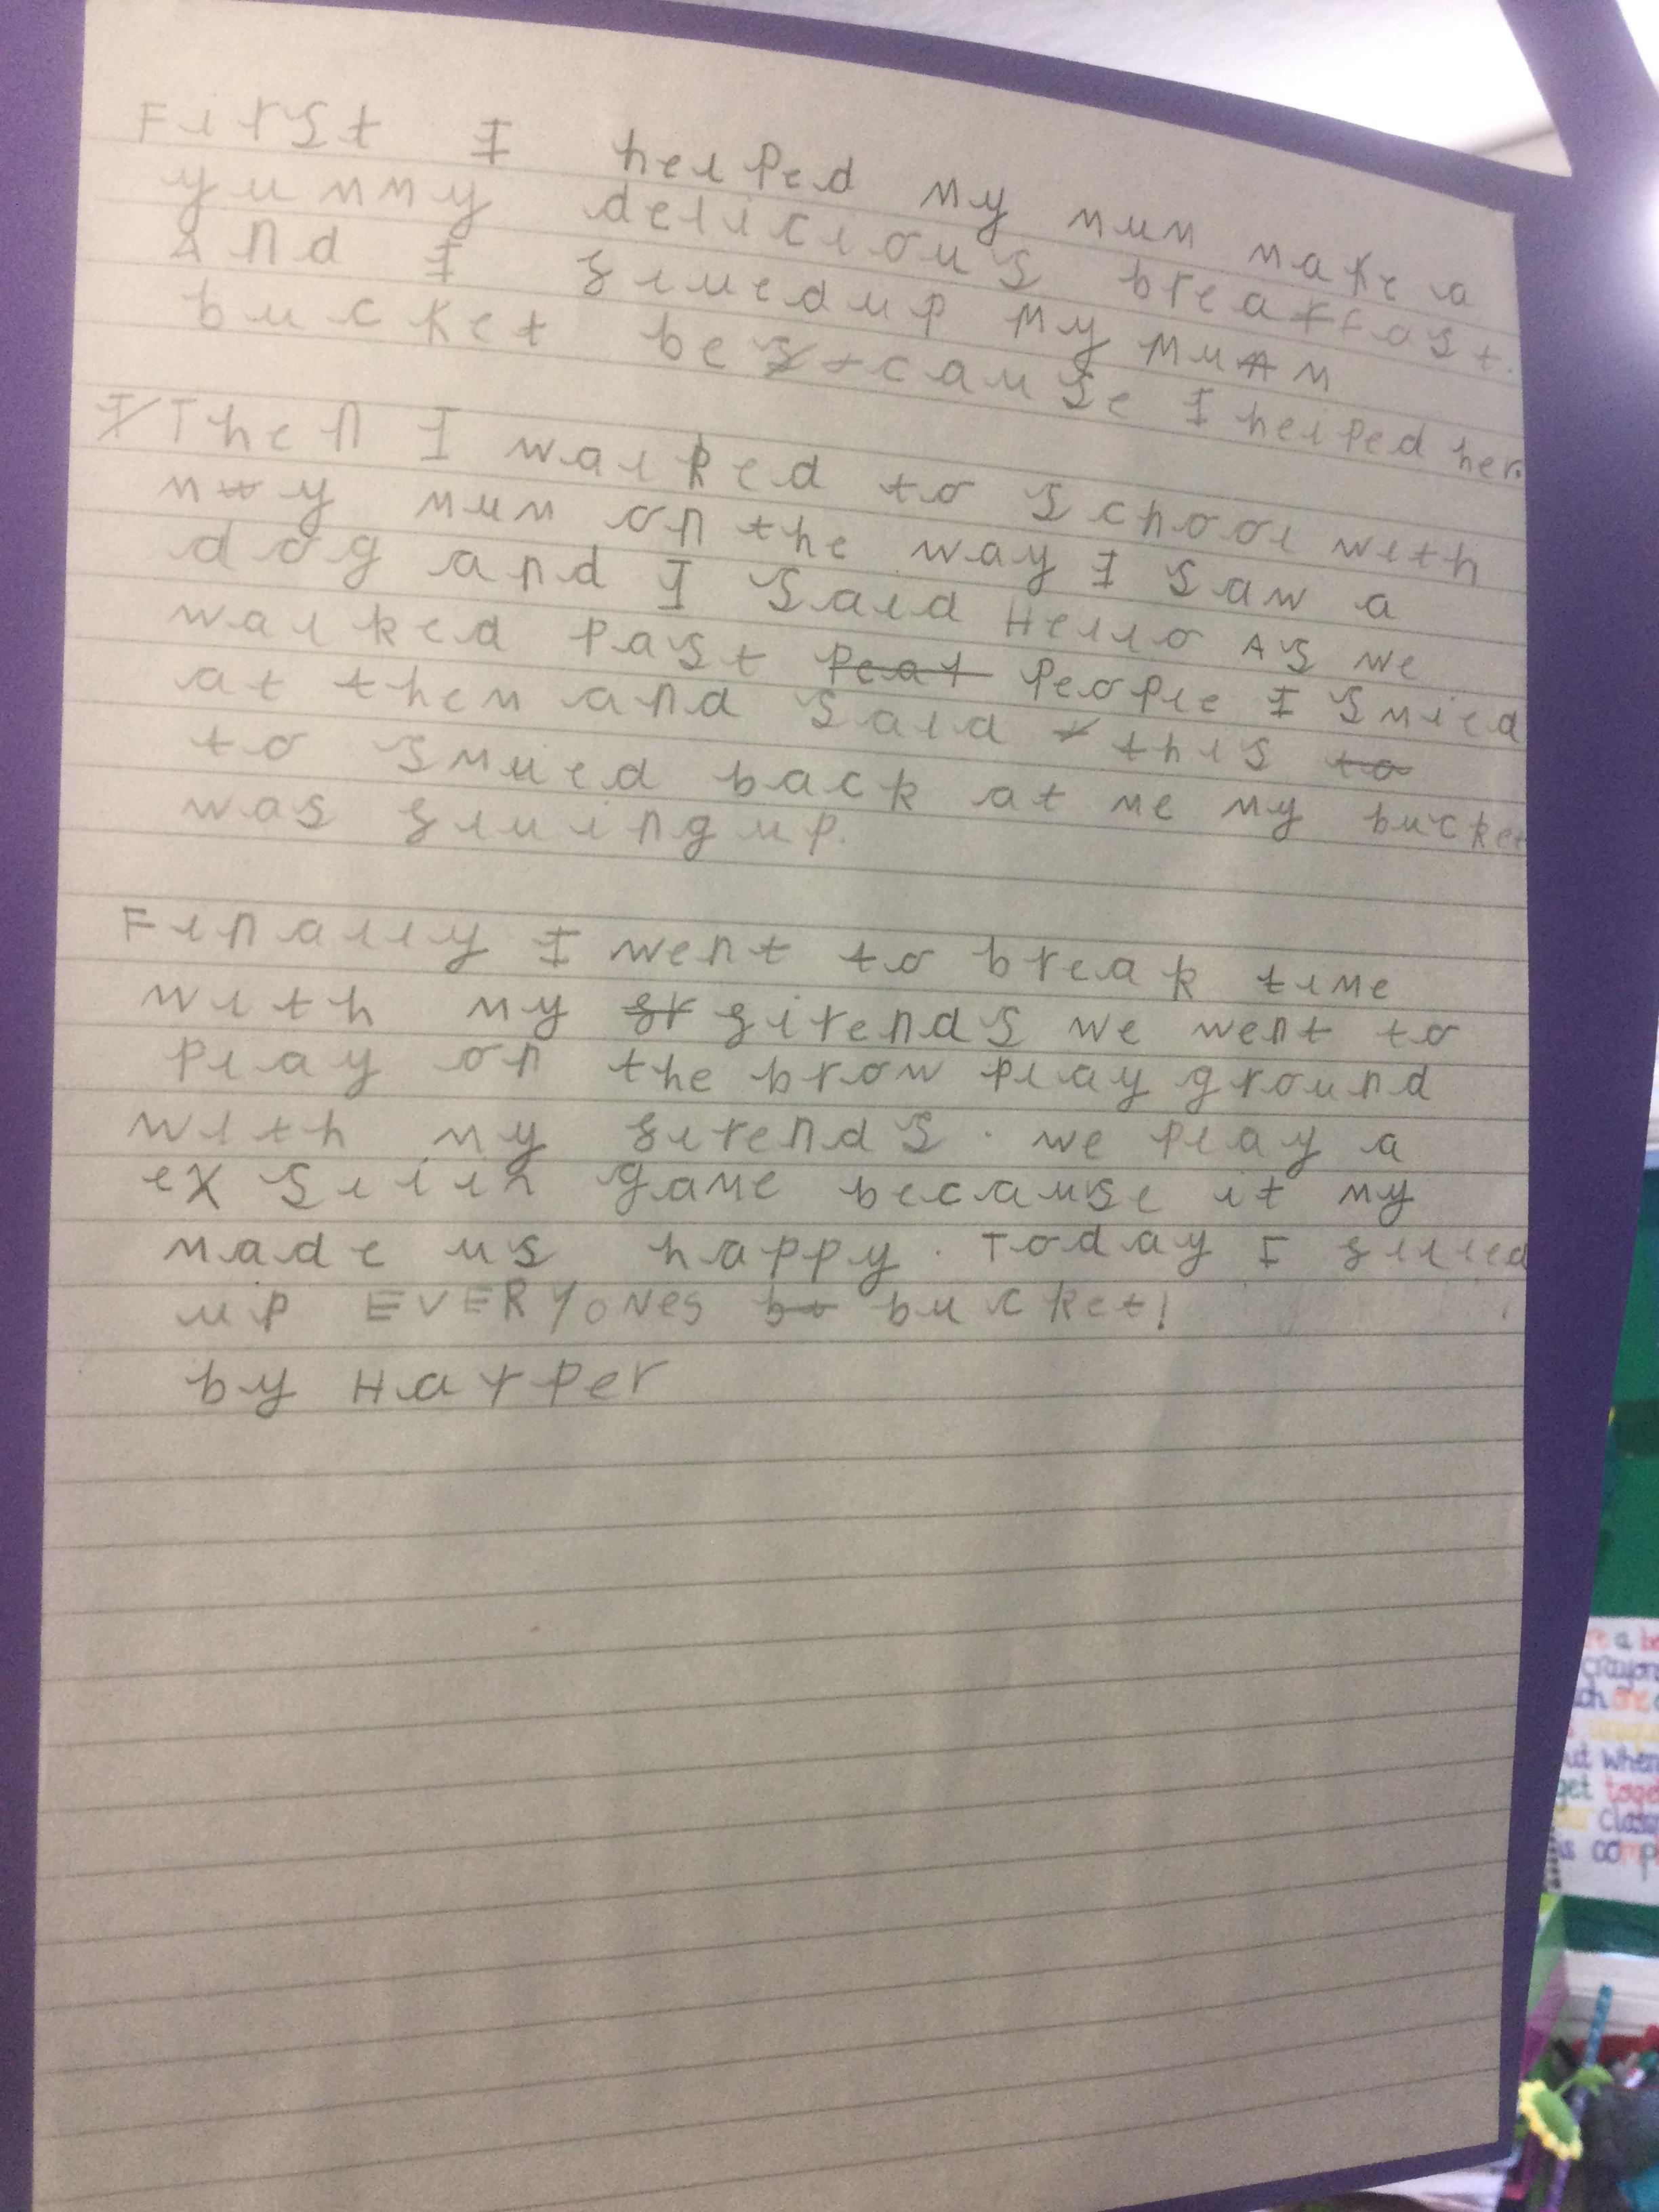 First I helped my mum make a
yummy delicious breakfast.
And I filledup my mum
bucket because I helped her.
Then I walked to school with
my mum on the way I saw a
dog and I said Hello As we
walked past people I smiled
at them and said this
to smiled back at me my bucket
was filling up.
Finally I went to break time
with my firends we went to
play on the brow play ground
with my firends. we play a
exsiiin game because it my
made us happy. Today I filled
up EVERYONes bucket!
by Harper
a be
crayon
one
ut when
get toge
class
is comp